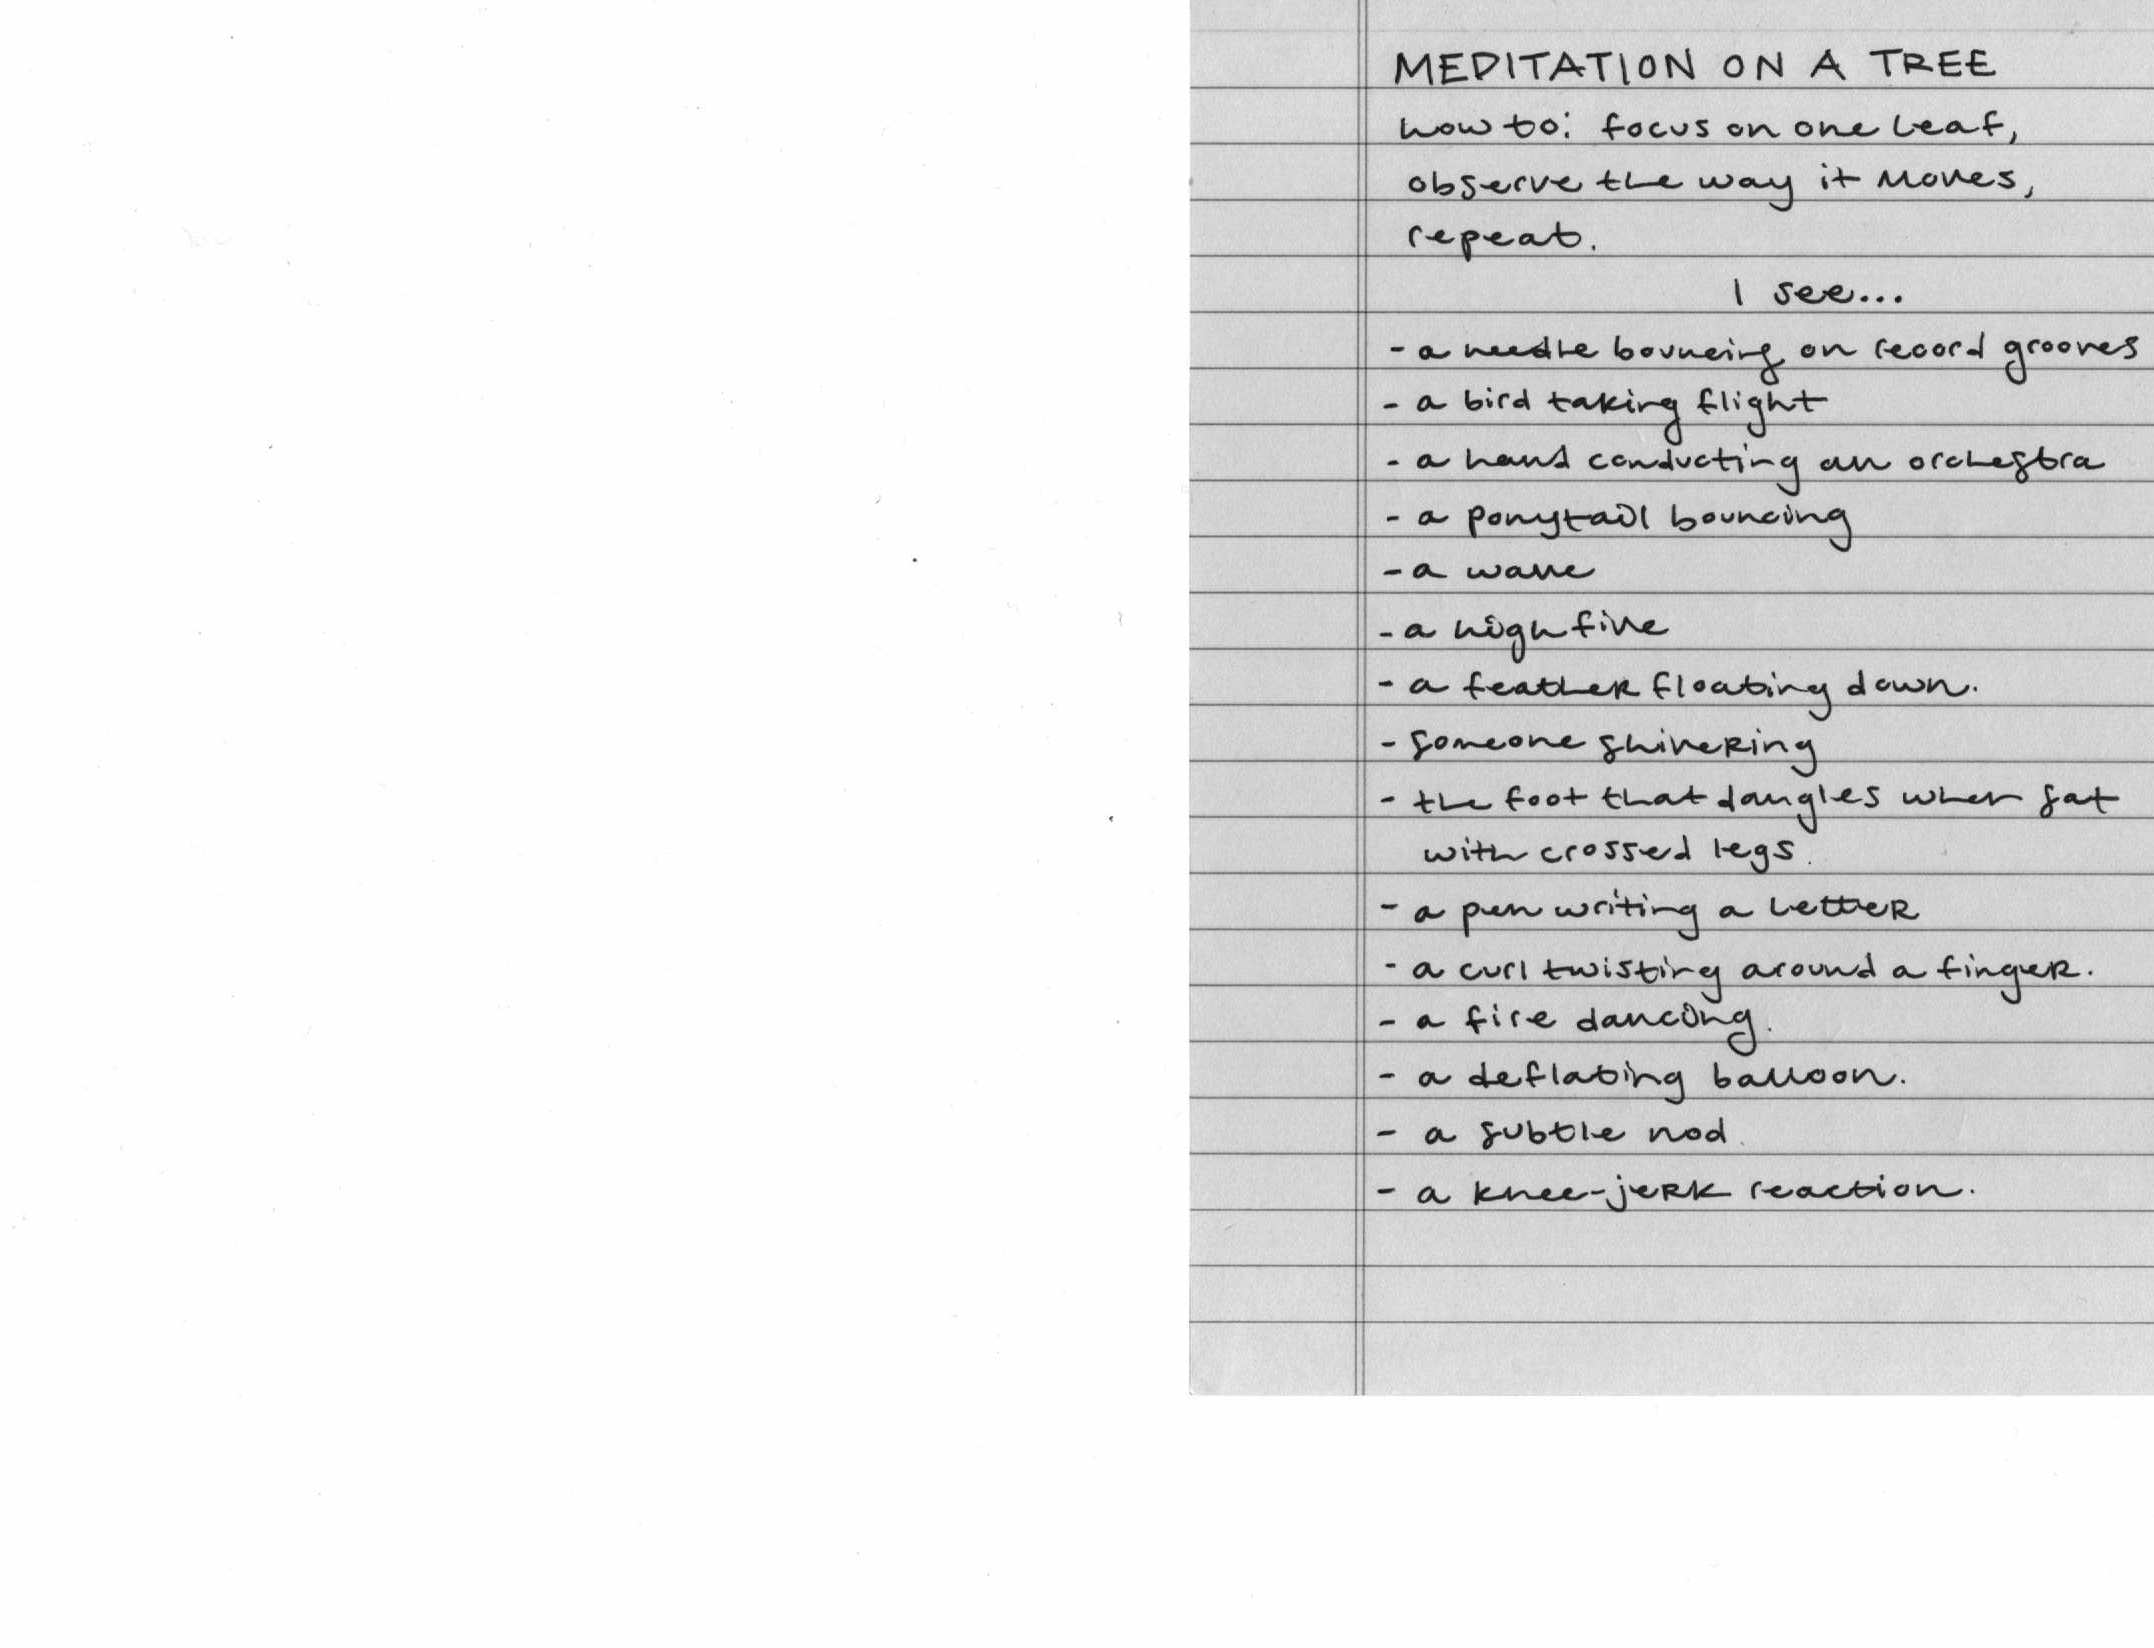 MEDITATION ON A TREE
how to: focus on one leaf,
observe the way it moves,
repeat.
I see...
- a needle bouncing on record grooves
- a bird taking flight
- a hand conducting an orchestra
- a ponytail bouncing
- a wave
- a high five
- a feather floating down.
- someone shivering
- the foot that dangles when sat
with crossed legs.
- a pen writing a letter
- a curl twisting around a finger.
- a fire dancing.
- a deflating balloon.
- a subtle nod.
- a knee-jerk reaction.